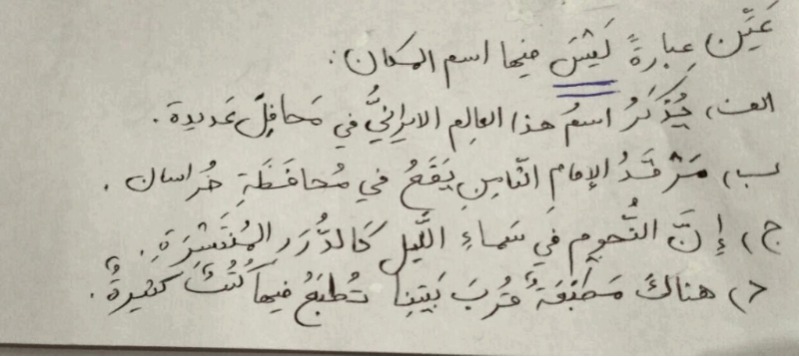 عَيِّن عِبارةً لَيْسَ فيها اسم المكان:
الف) يُذْكَرُ اسمُ هذا العالِم الايرانيُّ في مَحافِلَ عَديدة.
ب) مَرْقَدُ الإمام الثّامِنِ يَقَعُ في مُحافَظَةِ خُراسان.
ج) إِنَّ النُّجوم في سَماءِ اللَّيل كَالدُّرَرِ المُنْتَشِرَةِ.
د) هناكَ مَطْبَعَةٌ قُربَ بَيتِنا تُطبَعُ فيها كُتُبٌ كثيرةٌ.